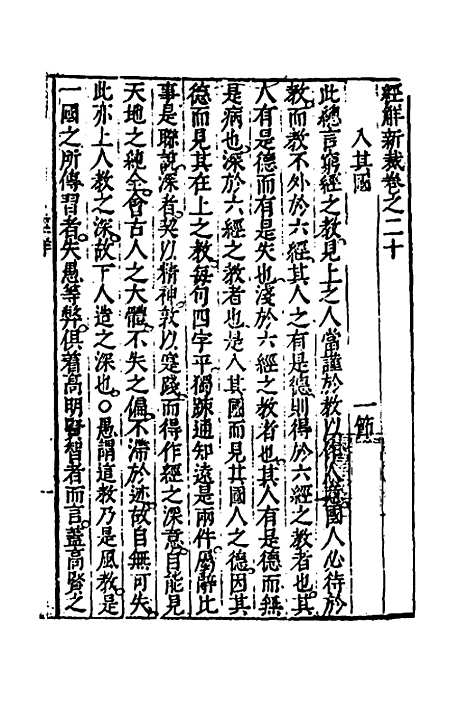 經解新裁卷之二十
入其國　一節
此總言窮經之教見上之人當謹於教以作人意國人必待於
教而教不外於六經其人之有是德則得於六經之教者也其
人有是德而有是失也淺於六經之教者也其人有是德而無
是病也深於六經之教者也是入其國而見其國人之德因其
德而見其在上之教每句四字平獨疎通知遠是兩件屬辭比
事是聯說深者契以精神敦以寔踐而得作經之深意自能見
天地之純全會古人之大體不失之偏不滯於迹故自無可失
此亦上人教之深故下人造之深也○愚謂這教乃是風教是
一國之所傳習者失愚等弊俱着高明賢智者而言蓋高賢之